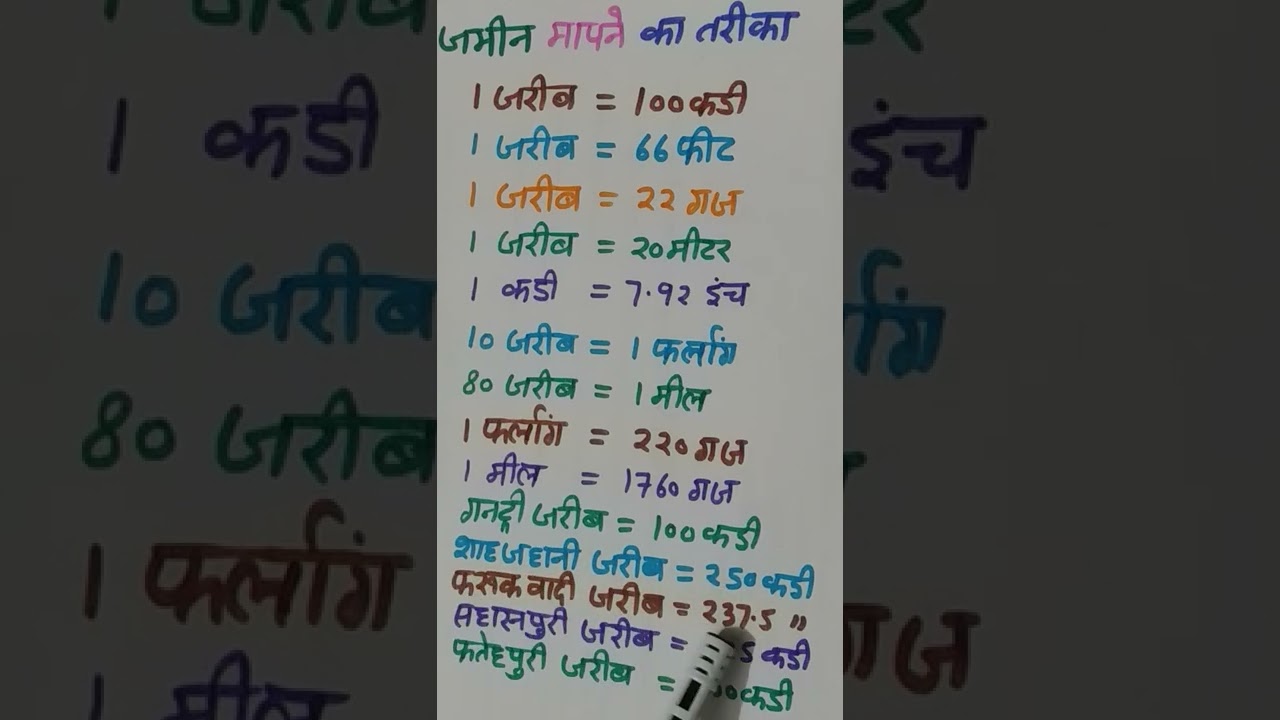 जमीन मापने का तरीका
1 जरीब = 100 कडी
1 जरीब = 66 फीट
1 जरीब = 22 गज
1 जरीब = 20 मीटर
1 कडी = 7.92 इंच
10 जरीब = 1 फर्लांग
80 जरीब = 1 मील
1 फर्लांग = 220 गज
1 मील = 1760 गज
जरीब = 100 कडी
शाहजहानी जरीब = 250 कडी
फरूकवादी जरीब = 237.5 "
सहासपुरी जरीब = कडी
फतेहपुरी जरीब = कडी